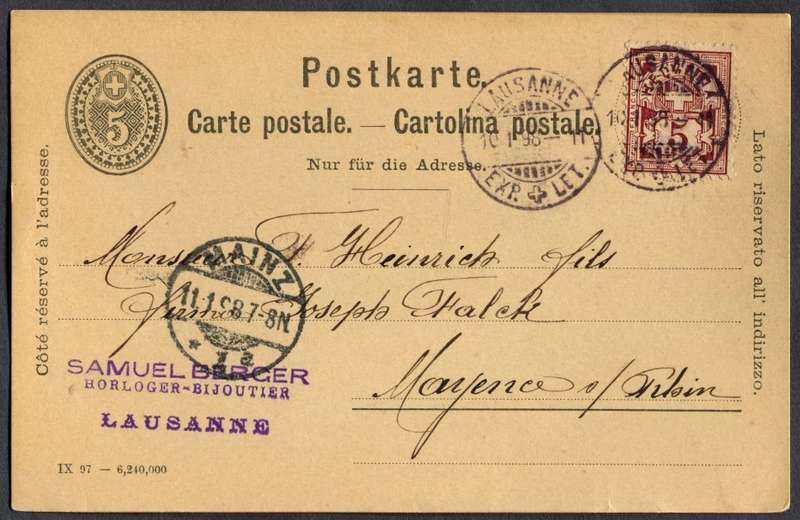 Postkarte.
Carte postale. — Cartolina postale.
Nur für die Adresse.
5
LAUSANNE
10.I.98 — 11
EXP. LET.
LAUSANNE
10.I.98 — 11
EXP. LET.
5
Côté réservé à l'adresse.
Lato riservato all' indirizzo.
Monsieur F. Heinrich fils
Firma Joseph Falck
Mayence s/ Rhin
MAINZ
11.1.98.7-8N.
* 1 a
SAMUEL BERGER
HORLOGER-BIJOUTIER
LAUSANNE
IX 97 — 6,240,000